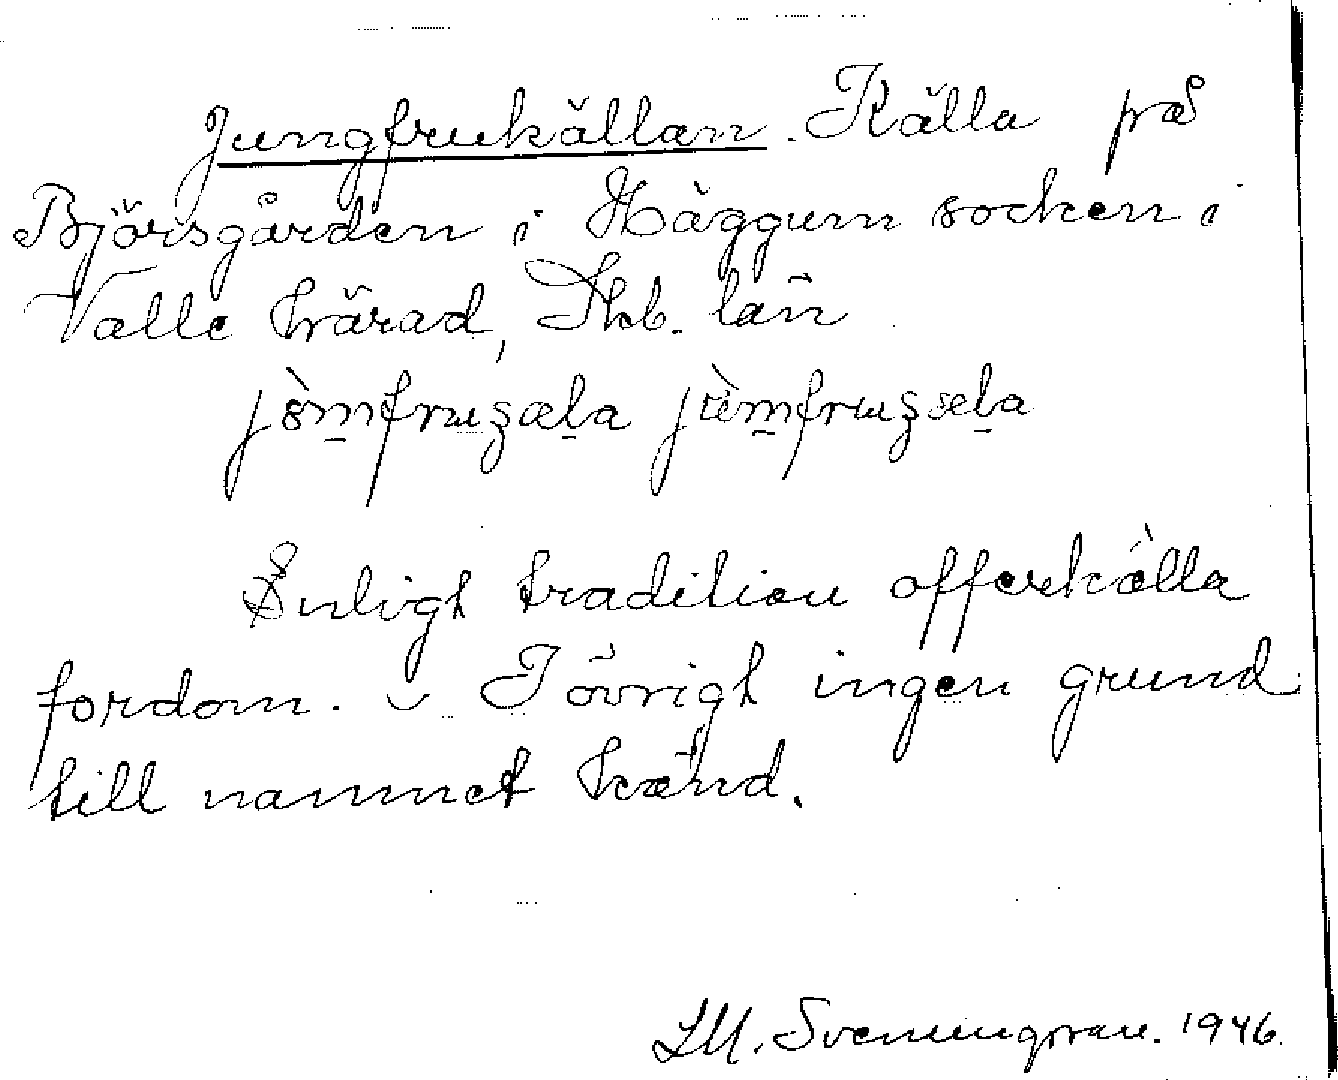 Jungfrukällan. Källa på
Björsgården i Häggum socken i
Valle härad, Skb. län
Enligt tradition offerkälla
fordom. I övrigt ingen grund
till namnet känd.
Sveningsson. 1946.